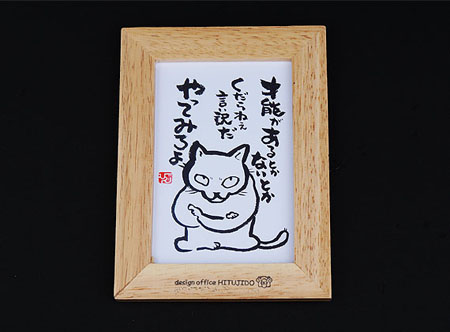 才能があるとか
ないとか
くだらねぇ
言い説だ
やってみろよ
design office HITUJIDO